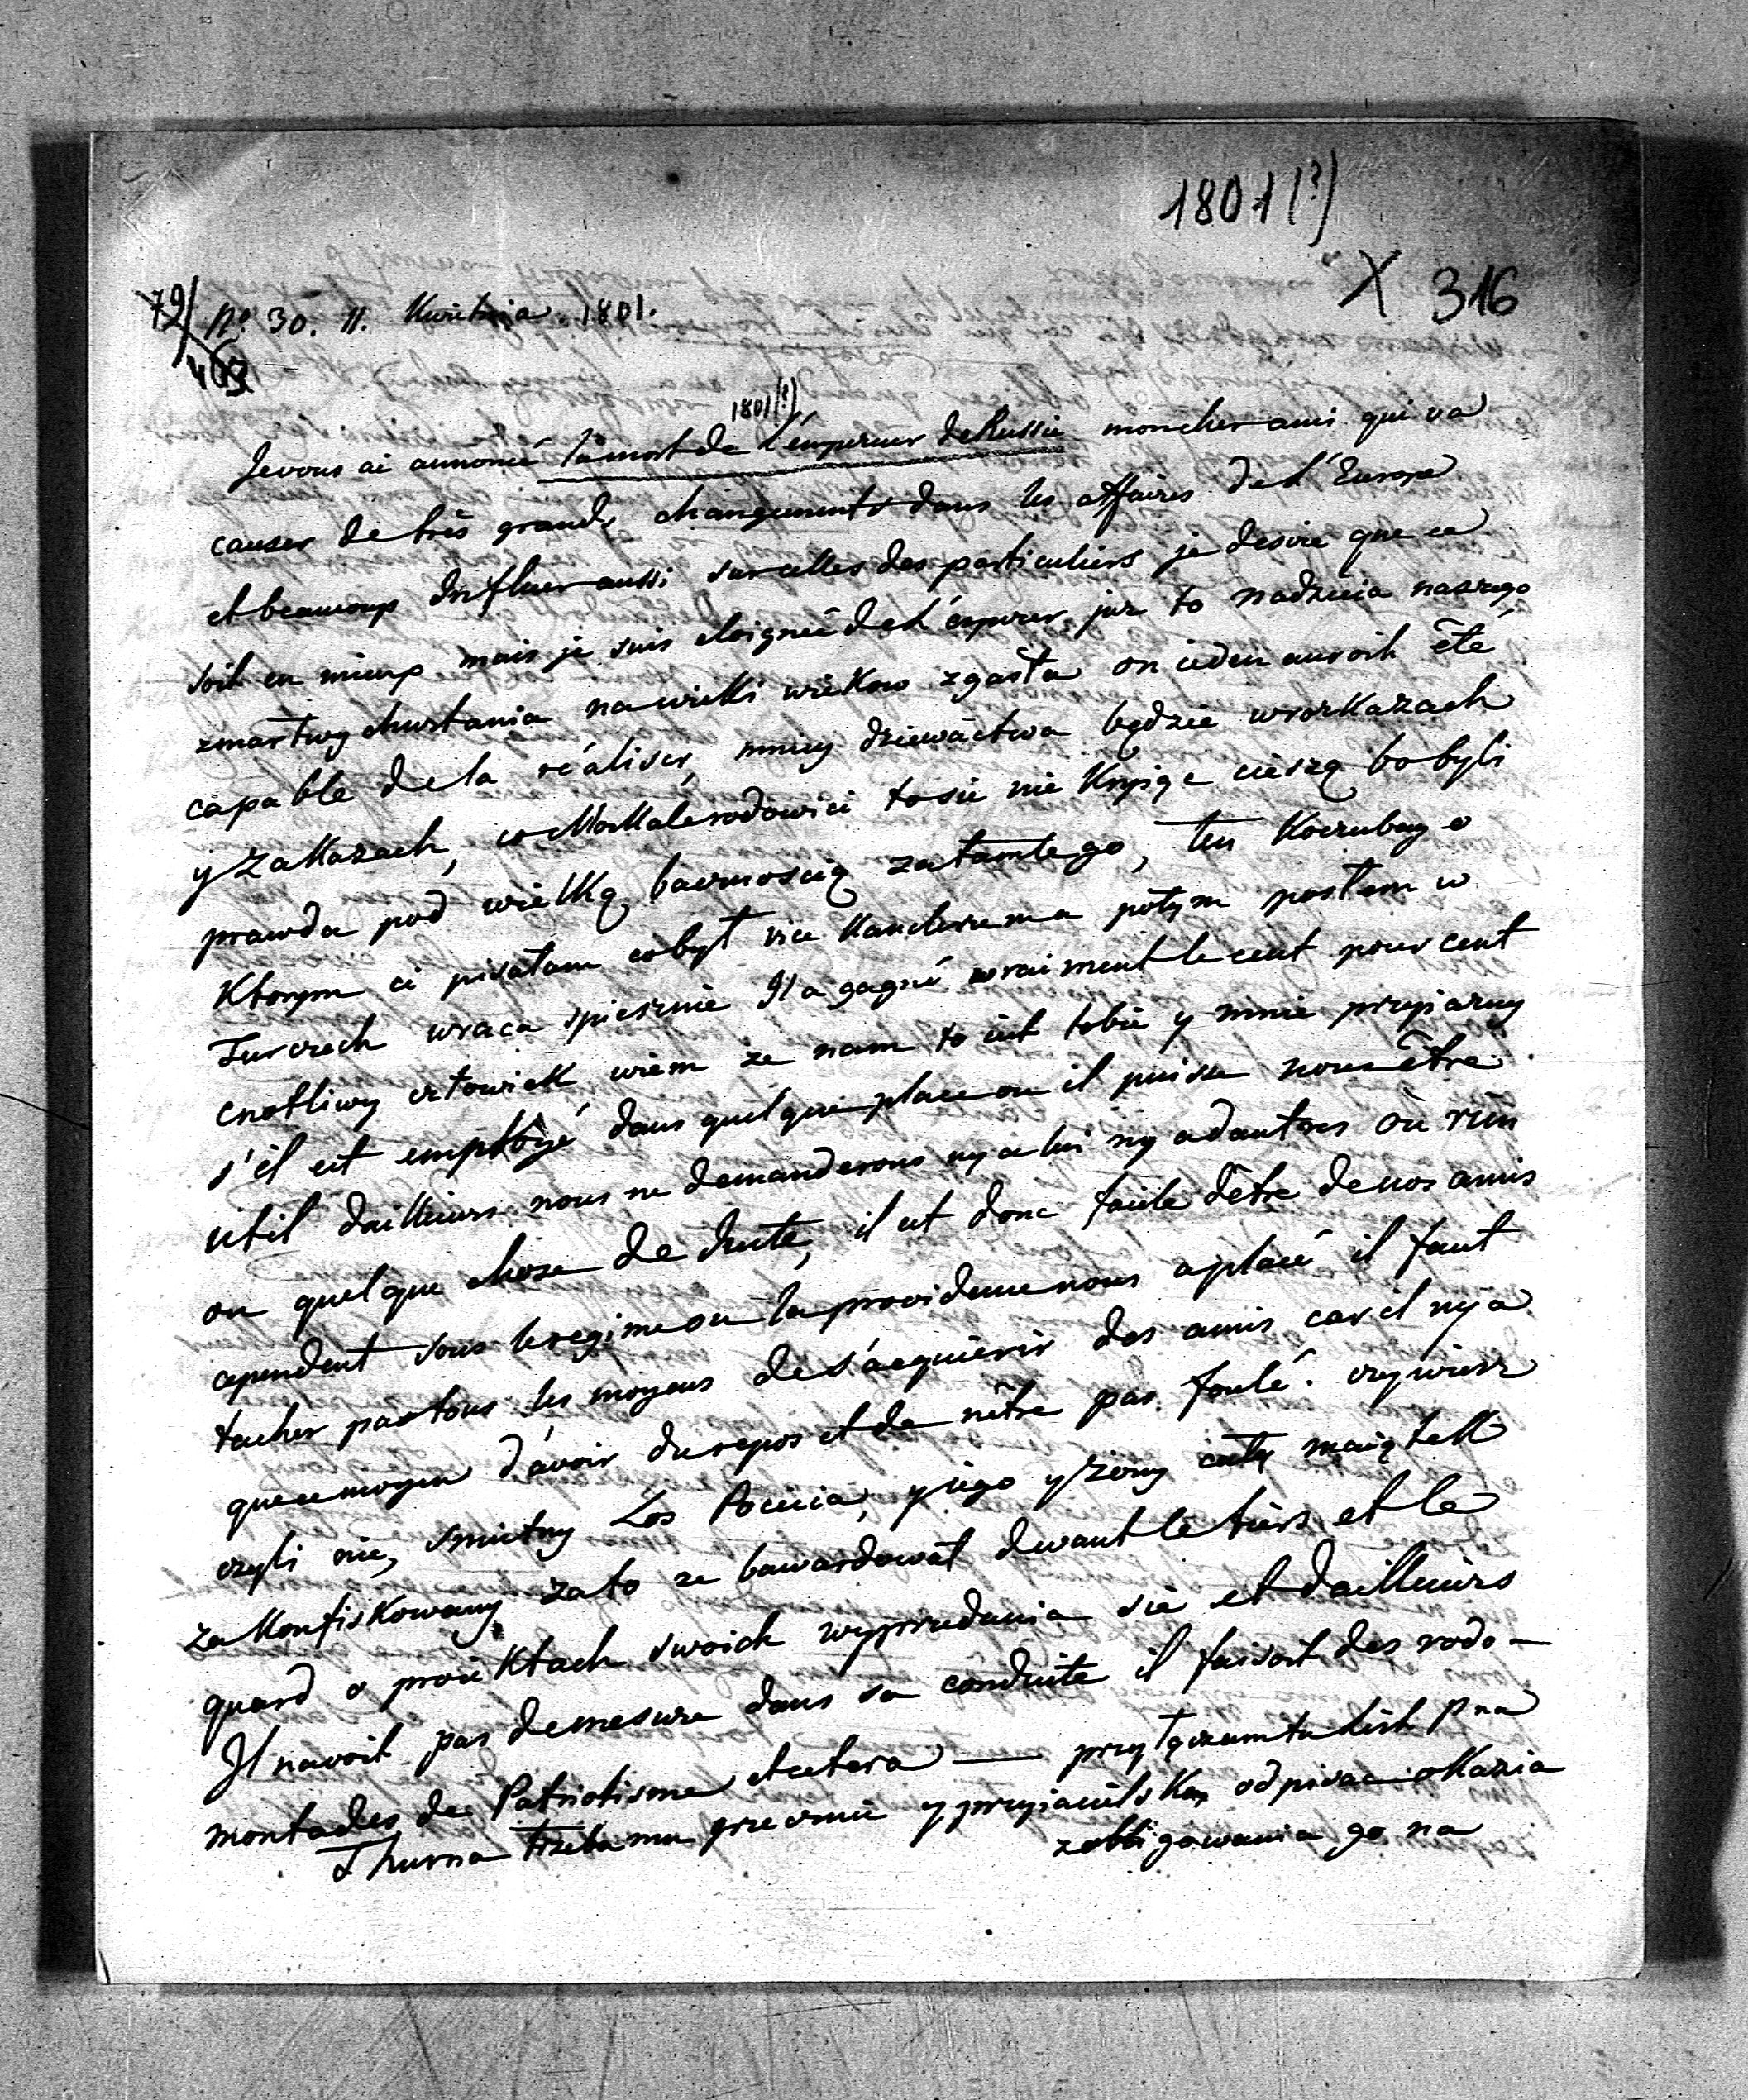 1801(?)
X 316
79/ No 30. 11. Kwietnia. 1801.
463
1801(?)
Je vous ai annoncé la mort de L'émpereur de Russie mon cher ami qui va
causer de très grands changements dans les affaires de L'Europe
et beaucoup Influer aussi sur celles des particuliers je desire que ce
soit en mieux mais je suis eloignée de L'esperer, juz to nadzieia naszego
zmartwychwstania na wieki wiekow zgasła on ieden auroit êté
capable de la réaliser, mniey dziewactwa będzie w rozkazach
y zakazach, co Moskale rodowici to sie nie kryiąc cieszą bo byli
prawda pod wielką bacznoscią za tamtego, ten Koczubey o
Ktorym ci pisałam co był vice kanclerzem a potym posłem w
Turczech wraca spiesznie Il a gagné vraiment le cent pour cent
cnotliwy człowiek wiem ze nam to iest tobie y mnie przyiazny
s'il est employé dans quelque place ou il puisse nous être
util dailleurs nous ne demanderons ny a lui ny a dautres ou rien
ou quelque chose de Juste, il est donc facile dêtre de nos amis
cependent sous le regime ou la providence nous a placé il faut
tacher par tous les moyens de s'acquierir des amis car il ny a
que ce moyen d'avoir du repos et de nêtre pas foulé. czy wiesz
czyli nie, smutny Los Pocieia, y iego y zony cały maiątek
zakonfiskowany za to ze bawardował devant le tiers et le
quard o proiektach swoich wyprzedania sie et dailleurs
Il navoit pas de mesure dans sa conduite il faisoit des rodo-
montades de Patriotisme etcetera — przyłączam tu List Pna
Thurna trzeba mu grzecznie y przyiacielsko odpisac okazia
zobligowania go na